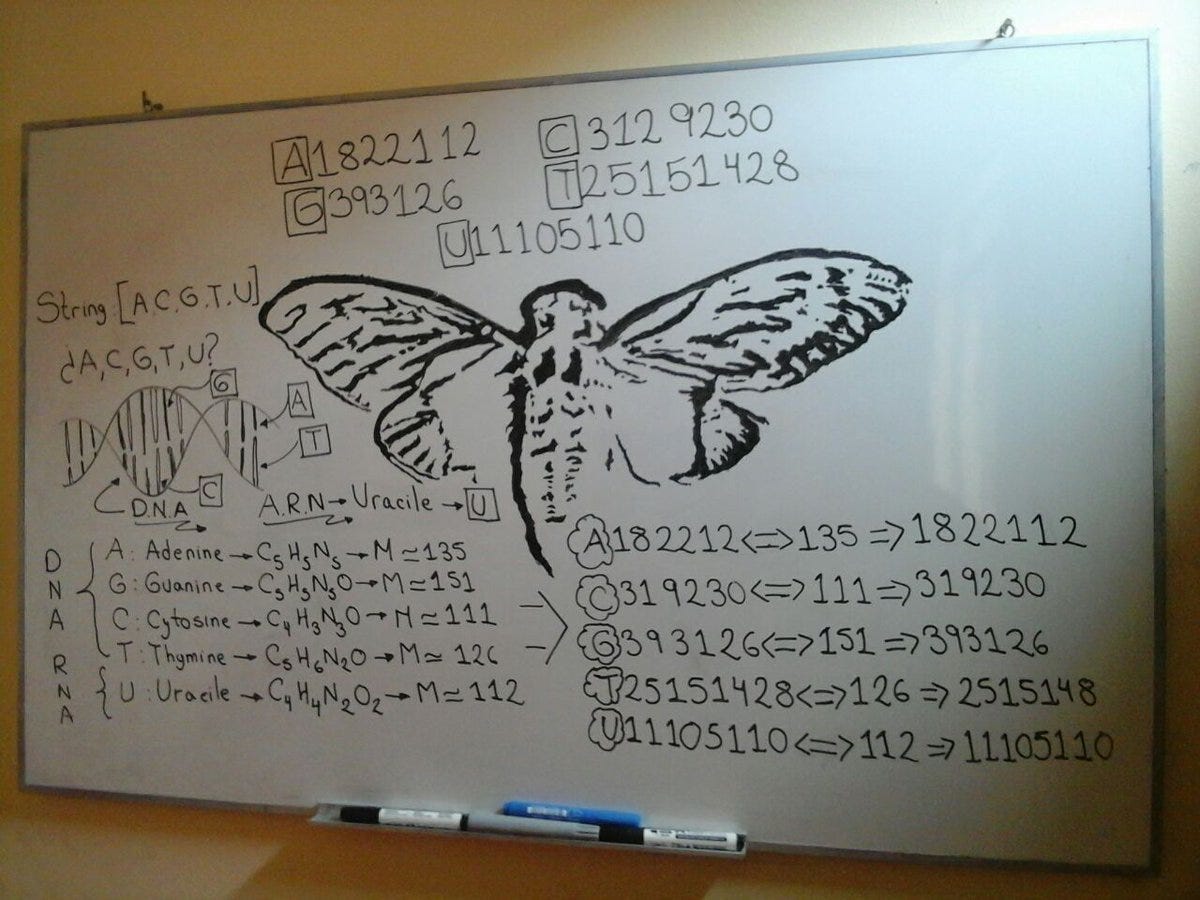 A 1822112 C 3129230
G 393126 T 25151428
U 11105110
String [A,C,G,T,U]
¿A,C,G,T,U?
G
A
T
C
D.N.A
A.R.N → Uracile → U
DNA
A : Adenine → C5H5N5 → M ≃ 135
G : Guanine → C5H5N5O → M ≃ 151
C : Cytosine → C4H3N3O → M ≃ 111
T : Thymine → C5H6N2O → M ≃ 126
RNA
U : Uracile → C4H4N2O2 → M ≃ 112
A 182212 <=> 135 => 1822112
C 319230 <=> 111 => 319230
G 393126 <=> 151 => 393126
T 25151428 <=> 126 => 2515148
U 11105110 <=> 112 => 11105110